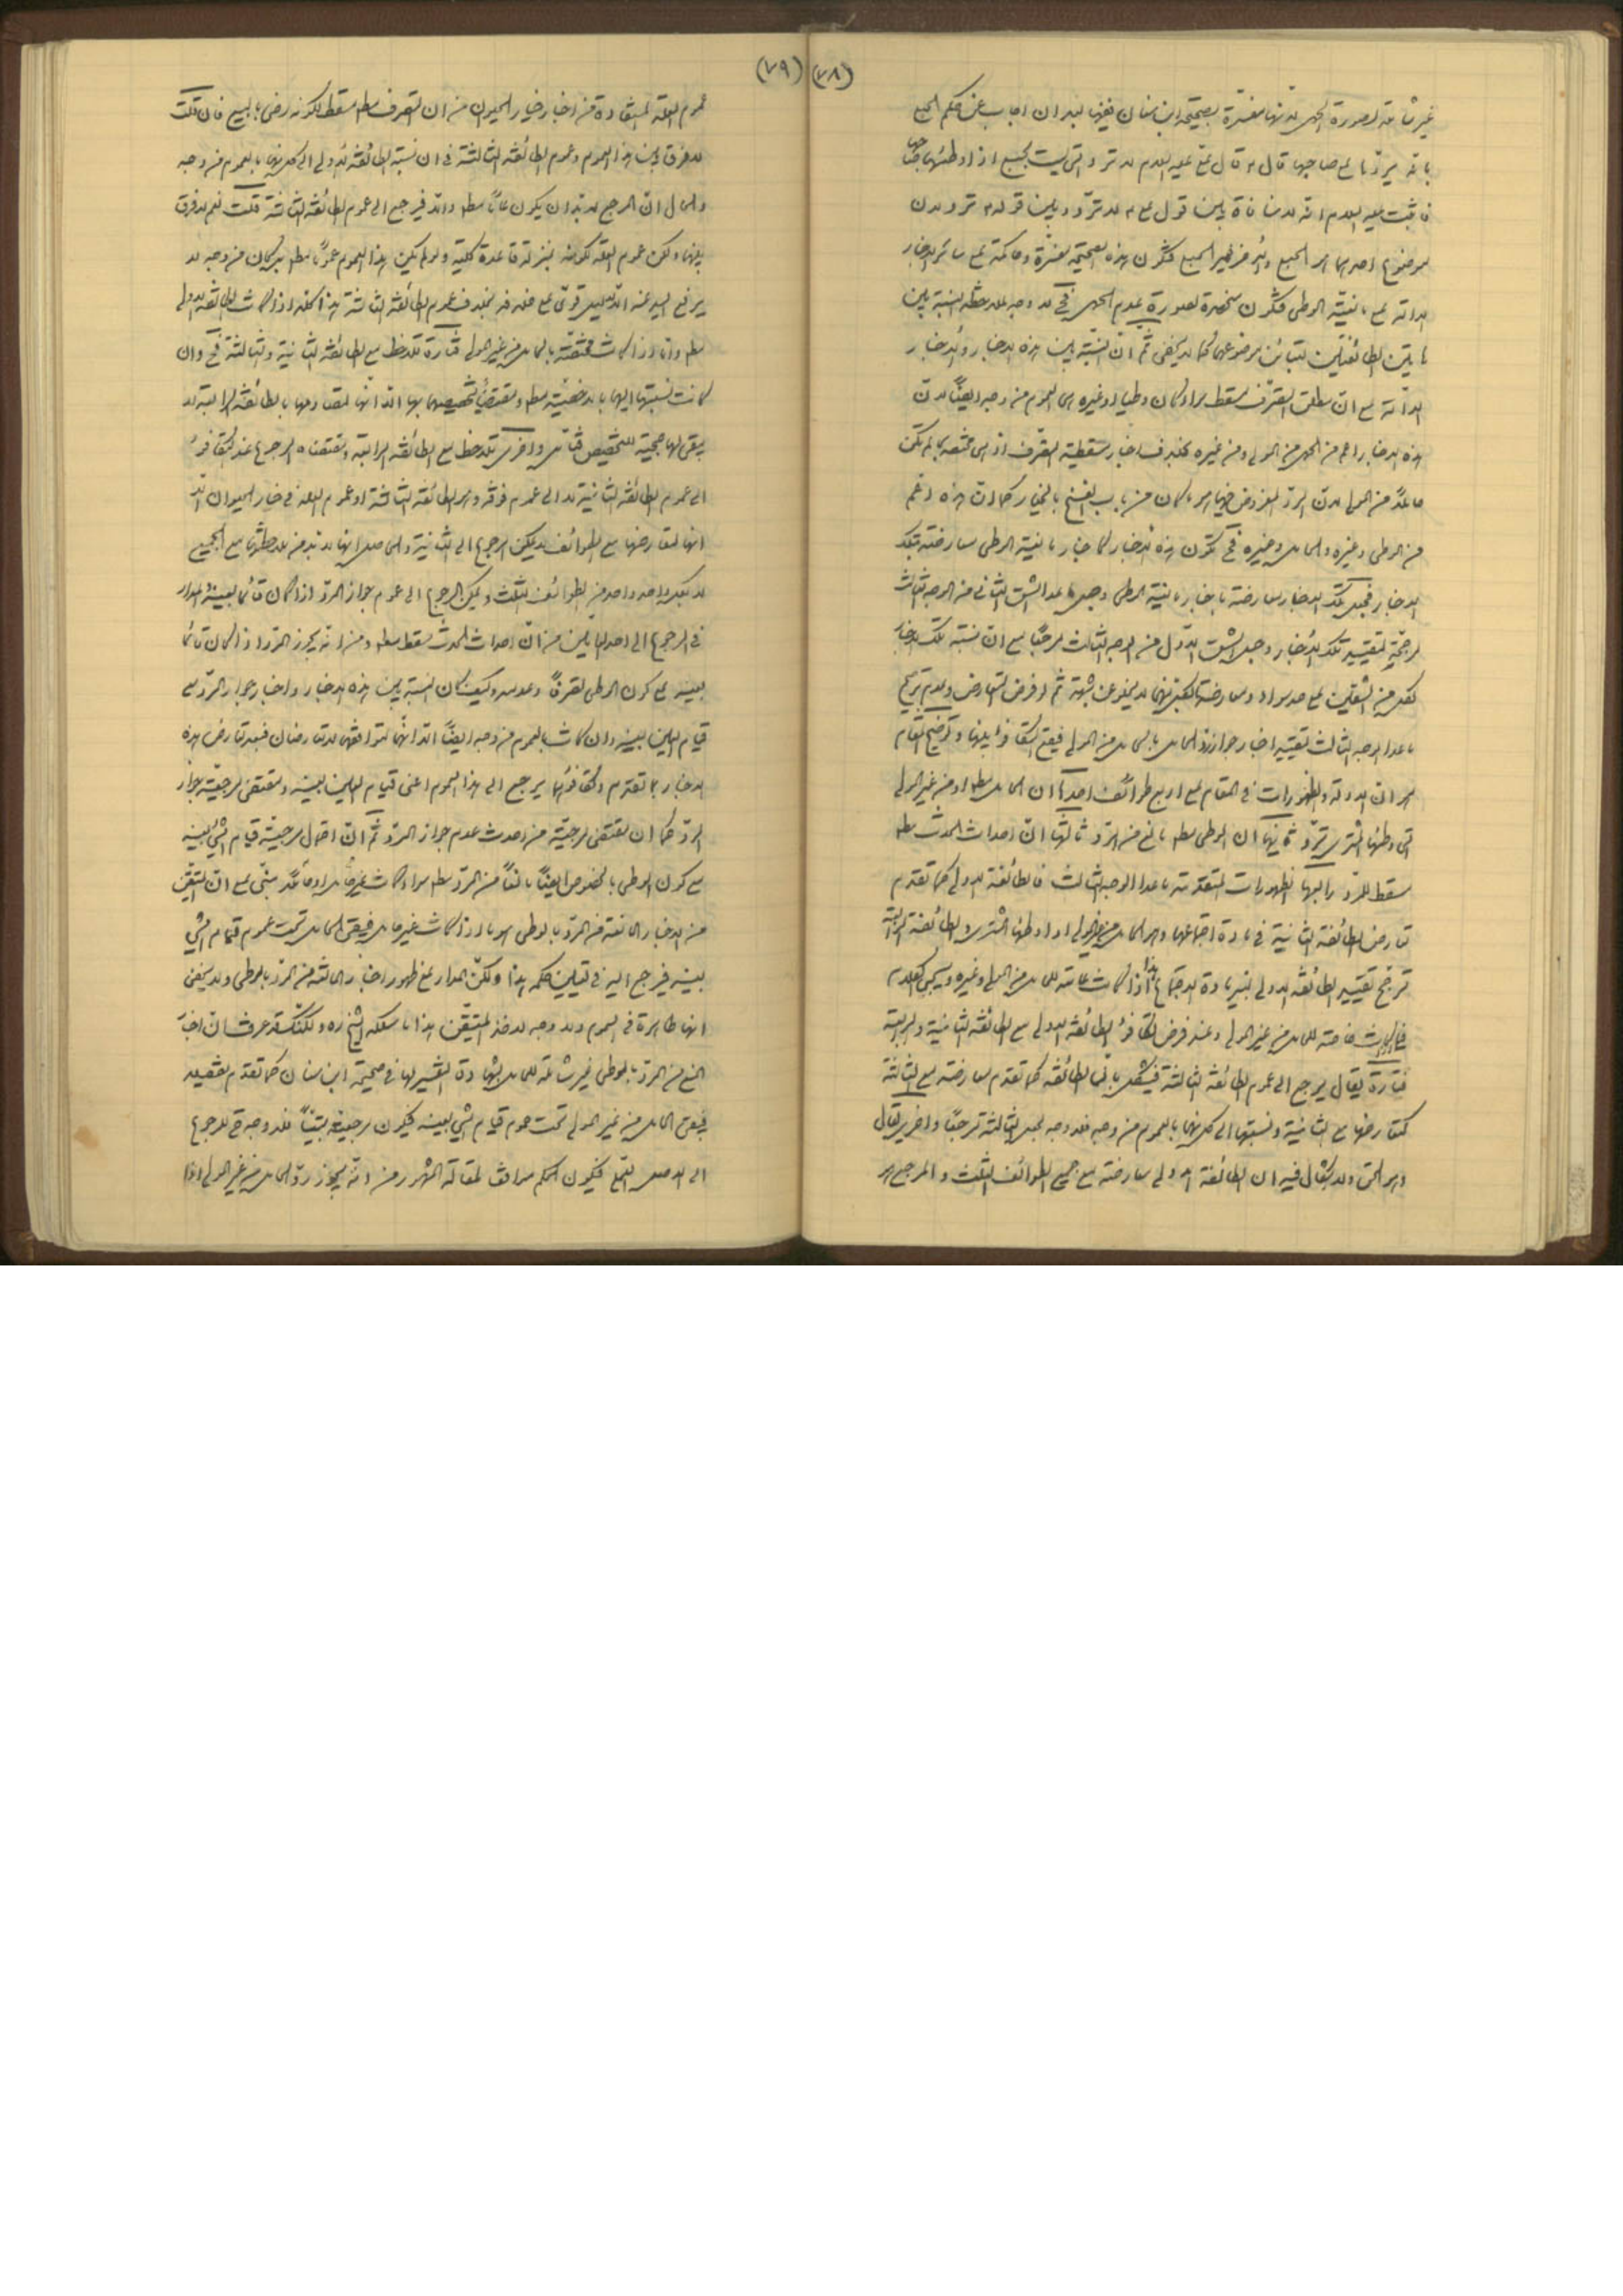 (٧٨)
غير شاملة لصورة الحمل لانها مفسرة بصحيحة ابن سنان ففيها بعد ان اجاب عن حكم الحبلى
بانه يردّها على صاحبها قال و قال علىّ عليه السلام لا ترد التى ليست بحبلى اذا وطئها صاحبها
فاثبت عليه السلام انه لا منافاة بين قول على لا تردّ و بين قوله ترد لان
موضوع احدهما هو الحبلى و الاخر غير الحبلى فتكون هذه الصحيحة مفسرة و حاكمة على سائر الاخبار
الدالة على مانعية الوطى فتكون منحصرة بصورة عدم الحمل فح لا وجه لملاحظة النسبة بين
ما بين الطائفتين لتباين موضوعهما كما لا يخفى ثم انّ النسبة بين هذه الاخبار و الاخبار
الدالة على ان مطلق التصرّف مسقط سواء كان وطيا او غيره هى العموم من وجه ايضاً لان
هذه الاخبار اعم من الحمل من المولى و من غيره بخلاف اخبار مسقطية التصرّف اذ هى مختصة بما لم تكن
حاملاً من المولى لان الردّ المفروض فيها هو ما كان من باب الفسخ بالخيار كما ان هذه اعم
من الوطى و غيره و الحامل و غيره فح تكون هذه الاخبار كاخبار مانعية الوطى معارضة بتلك
الاخبار فجعل تلك الاخبار معارضة باخبار مانعية الوطى و جعل ما عدا الشق الثانى من الوجه الثالث
مرجّحة لتقييد تلك الاخبار و جعل الشق الاول من الوجه الثالث مرجّحاً مع ان نسبة تلك الاخبار
لكل من الشقين على حد سواء و معارضة لكليهما لا يخلو عن شبهة ثم لو فرض التعارض و عدم ترجيح
ما عدا الوجه الثالث تقييد اخبار جواز ردّ الحامل بالحامل من المولى فيقع التكافؤ بينهما و توضيح المقام
هو ان الادلة و الظهورات فى المقام على اربع طوائف احدها ان الحامل مطلقا او من غير المولى
التى وطئها المشترى تردّ ثانيها ان الوطى مطلقا مانع من الردّ ثالثها انّ احداث الحدث مطلقا
مسقط للردّ رابعها الظهورات المتقدمة ما عدا الوجه الثالث فالطائفة الاولى كما تقدم
تعارض الطائفة الثانية فى مادة اجتماعهما و هو الحامل من غير المولى اذا وطئها المشترى و الطائفة الرابعة
ترجّح تقييد الطائفة الاولى بغير مادة الاجتماع هذا اذا كانت عامة للحامل من المولى و غيره و سيجيئ الكلام
فيما اذا كانت خاصة للحامل من غير المولى و عند فرض تكافؤ الطائفة الاولى مع الطائفة الثانية و الرابعة
فتارة يقال يرجع الى عموم الطائفة الثالثة فيشكل بانّ الطائفة كما تقدم معارضة مع الثالثة
كتعارضها مع الثانية و نسبتها الى كل منهما بالعموم من وجه فلا وجه لجعل الثالثة مرجعاً و اخرى يقال
و هو الحق و لا اشكال فيه ان الطائفة الاولى معارضة مع جميع الطوائف الثلث و المرجع هو
(٧٩)
عموم العلة المستفادة من اخبار خيار الحيوان من ان التصرف مطلقا مسقط لكونه رضى بالبيع فان قلت
لا فرق بين هذا العموم و عموم الطائفة الثالثة فى ان نسبة الطائفة الاولى الى كل منهما بالعموم من وجه
و الحال انّ المرجع لا بدّ ان يكون عامّاً مطلقا و الّا فيرجع الى عموم الطائفة الثالثة قلت نعم لا فرق
بينهما و لكن عموم العلة لكونه بمنزلة قاعدة كلية و لو لم يكن هذا العموم عموماً مطلقا بل كان من وجه لا
يرفع اليد عنه الّا بدليل قوىّ على خلافه بخلاف عموم الطائفة الثالثة هذا كله اذا كانت الطائفة الاولى
مطلقا و اما اذا كانت مختصة بالحامل من غير المولى فتارة تلاحظ مع الطائفة الثانية و الثالثة فح و ان
كانت نسبتها اليهما بالاخصّية مطلقا و مقتضى تخصيصهما بها الّا انّها لتعارضها بالطائفة الرابعة لا
يبقى لها صحية للتخصيص و اخرى تلاحظ مع الطائفة الرابعة و مقتضاه الرجوع عند التكافؤ
الى عموم الطائفة الثانية لا الى عموم فوقه و هو الطائفة الثالثة او عموم العلة فى خيار الحيوان الّا
انها لتعارضها مع الطوائف لا يمكن الرجوع الى الثانية و الحاصل انها لا بد من ملاحظتها مع الجميع
لا بكل واحد واحد من الطوائف الثلث و يمكن الرجوع الى عموم جواز الردّ اذا كان قائما بعينه و المدار
فى الرجوع الى احد العامين من انّ احداث الحدث مسقط مطلقا و من انه يجوز الردّ اذا كان قائما
بعينه على كون الوطى تصرفاً و عدمه و كيف كان النسبة بين هذه الاخبار و اخبار جواز الردّ مع
قيام العين بعينه و ان كانت بالعموم من وجه ايضاً الّا انّهما لتوافقهما لا يتعارضان فبعد تعارض هذه
الاخبار بما تقدم و تكافؤها يرجع الى هذا العموم اعنى قيام العين بعينه و مقتضى مرجعيته جواز
الردّ كما ان مقتضى مرجعيّة من احدث عدم جواز الردّ ثم انّ احتمال مرجعيّة قيام الشئ بعينه
مع كون الوطى بالخصوص ايضاً مانعاً من الردّ مطلقا سواء كانت غير حامل او حاملاً مبنى على ان المتيقن
من الاخبار المانعة من الردّ بالوطى هو ما اذا كانت غير حامل فيبقى الحامل تحت عموم قيام الشئ
بعينه فيرجع اليه فى تعيين حكمه هذا و لكن المدار على ظهور اخبار المانعة من الردّ بالوطى و لا يخفى
انها ظاهرة فى العموم و لا وجه لاخذ المتيقن هذا ما سلكه الشيخ ره و لكنك قد عرفت ان اخبار
المنع من الردّ بالوطى غير شاملة للحامل بشهادة التفسير لها فى صحيحة ابن سنان كما تقدم تفصيله
فيبقى الحامل من غير المولى تحت عموم قيام الشئ بعينه فيكون مرجعيته متيقناً فلا وجه ح للرجوع
الى الاصل العملى فيكون الحكم موافق لمقالة المشهور من انه يجوز ردّ الحامل من غير المولى اذا